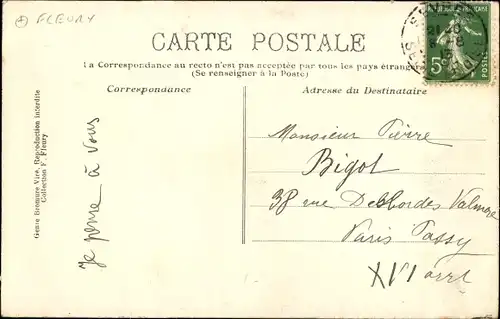 FLEURY
CARTE POSTALE
La Correspondance au recto n'est pas acceptée par tous les pays étrangers
(Se renseigner à la Poste)
Correspondance
Adresse du Destinataire
Genre Bromure Viré, Reproduction interdite
Collection F. Fleury
Je pense à vous
Monsieur Pierre
Bigot
38 rue Desbordes Valmore
Paris Passy
XVI arrt
5c